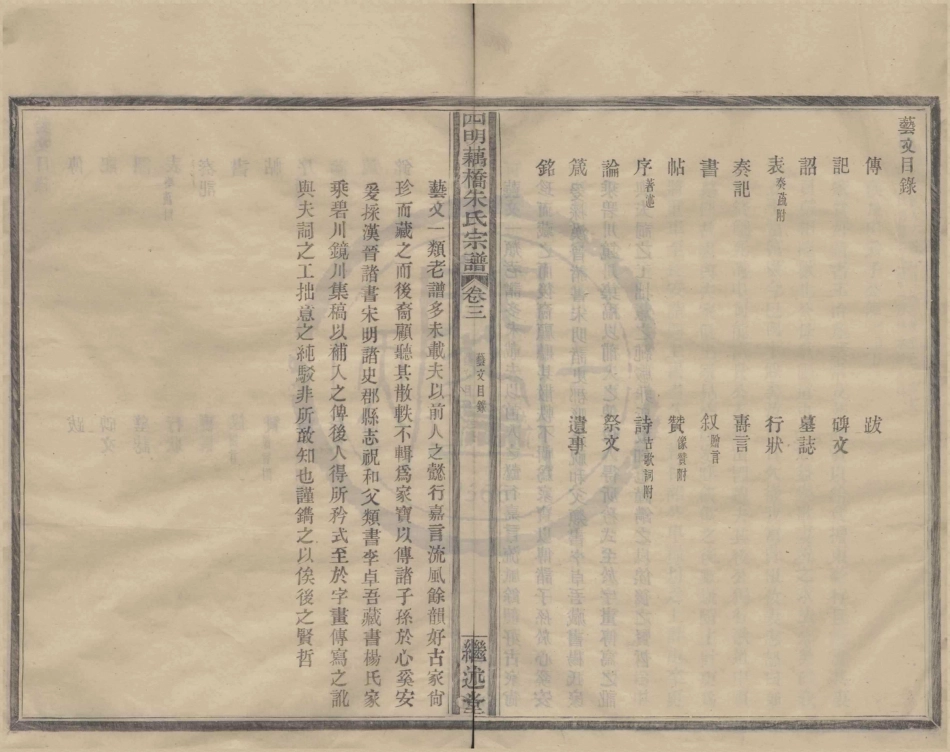 藝文目錄
傳 跋
記 碑文
詔 墓誌
表 奏疏附 行狀
奏記 壽言
書 叙 贈言
帖 贊 像贊附
序 著述 詩 古歌詞附
論 祭文
箴 遺事
銘
四明藕橋朱氏宗譜 卷三 藝文目錄 一 繼述堂
藝文一類老譜多未載夫以前人之懿行嘉言流風餘韻好古家尙
珍而藏之而後裔顧聽其散軼不輯爲家寶以傳諸子孫於心奚安
爰採漢晉諸書宋明諸史郡縣志祝和父類書李卓吾藏書楊氏家
乘碧川鏡川集稿以補入之俾後人得所矜式至於字畫傳寫之訛
與夫詞之工拙意之純駁非所敢知也謹鐫之以俟後之賢哲